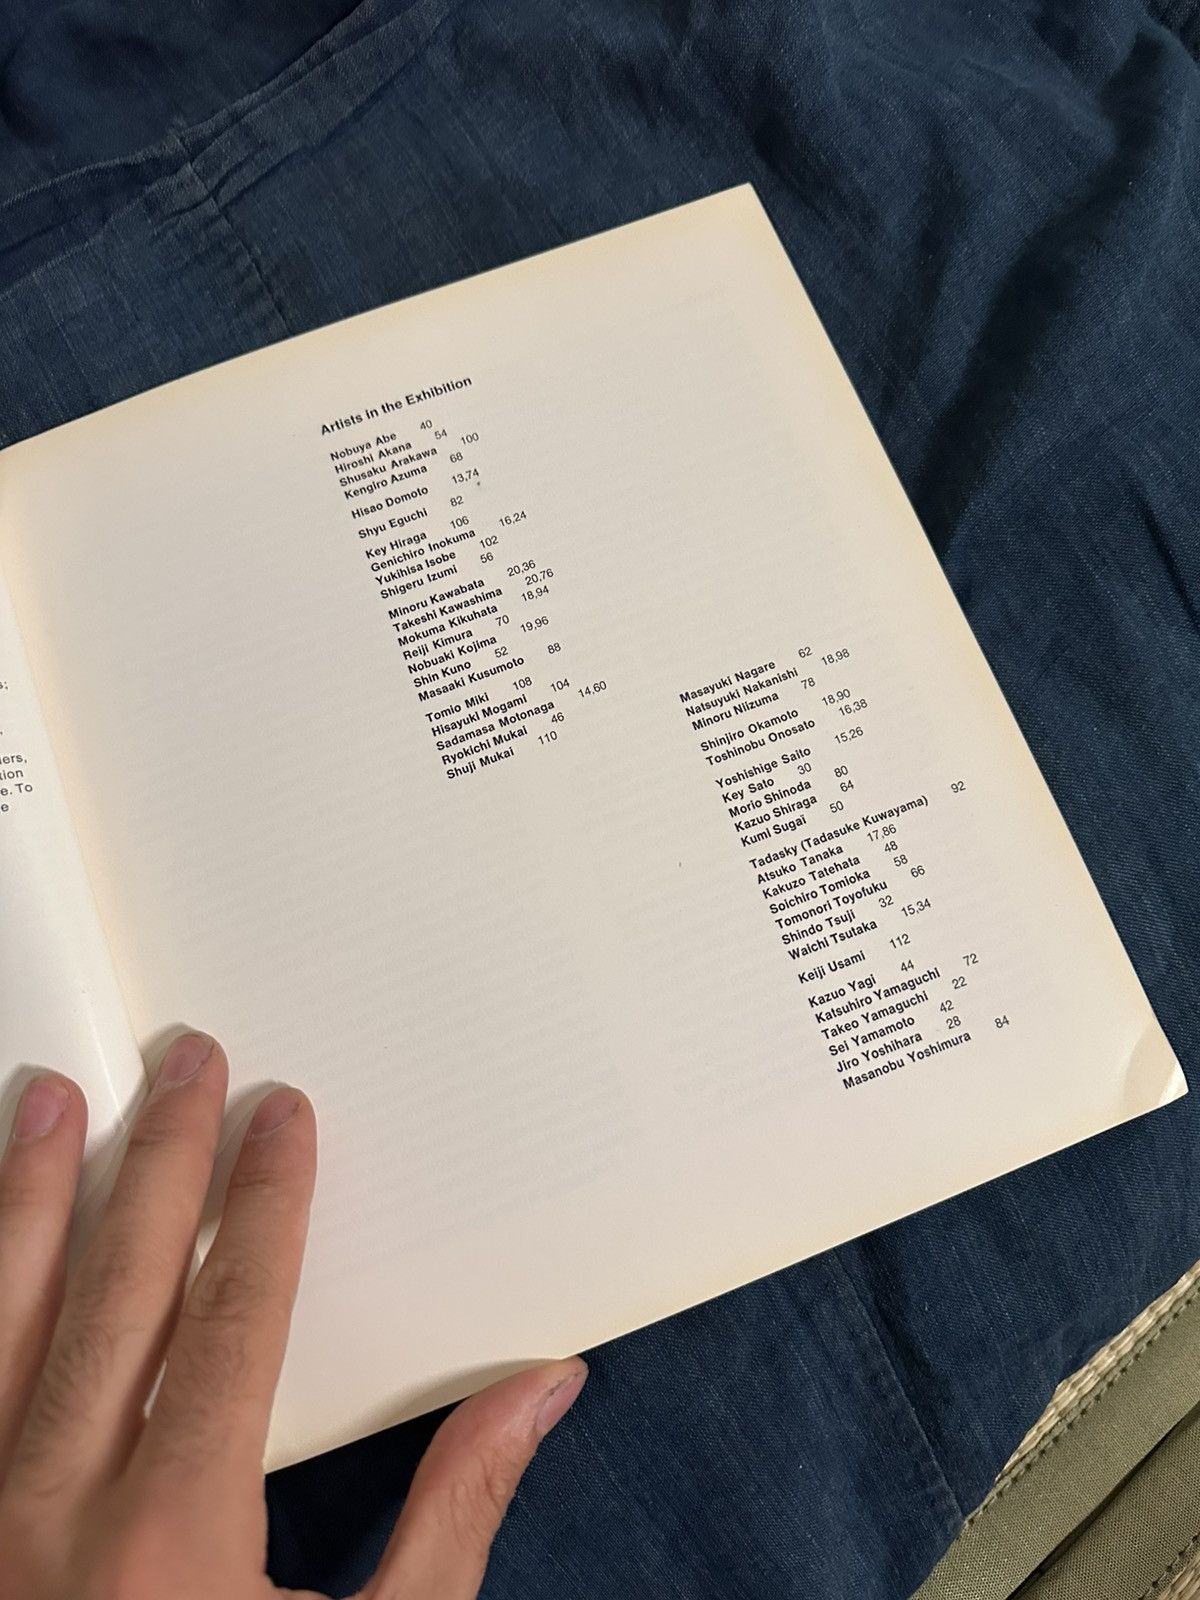 s;
,
ers,
tion
e. To
e
Artists in the Exhibition
Nobuya Abe 40
Hiroshi Akana 54
Shusaku Arakawa 100
Kengiro Azuma 68
Hisao Domoto 13,74
Shyu Eguchi 82
Key Hiraga 106
Genichiro Inokuma 16,24
Yukihisa Isobe 102
Shigeru Izumi 56
Minoru Kawabata 20,36
Takeshi Kawashima 20,76
Mokuma Kikuhata 18,94
Reiji Kimura 70
Nobuaki Kojima 19,96
Shin Kuno 52
Masaaki Kusumoto 88
Tomio Miki 108
Hisayuki Mogami 104
Sadamasa Motonaga 14,60
Ryokichi Mukai 46
Shuji Mukai 110
Masayuki Nagare 62
Natsuyuki Nakanishi 18,98
Minoru Niizuma 78
Shinjiro Okamoto 18,90
Toshinobu Onosato 16,38
Yoshishige Saito 15,26
Key Sato 30
Morio Shinoda 80
Kazuo Shiraga 64
Kumi Sugaï 50
Tadasky (Tadasuke Kuwayama) 92
Atsuko Tanaka 17,86
Kakuzo Tatehata 48
Soichiro Tomioka 58
Tomonori Toyofuku 66
Shindo Tsuji 32
Waichi Tsutaka 15,34
Keiji Usami 112
Kazuo Yagi 44
Katsuhiro Yamaguchi 72
Takeo Yamaguchi 22
Sei Yamamoto 42
Jiro Yoshihara 28
Masanobu Yoshimura 84